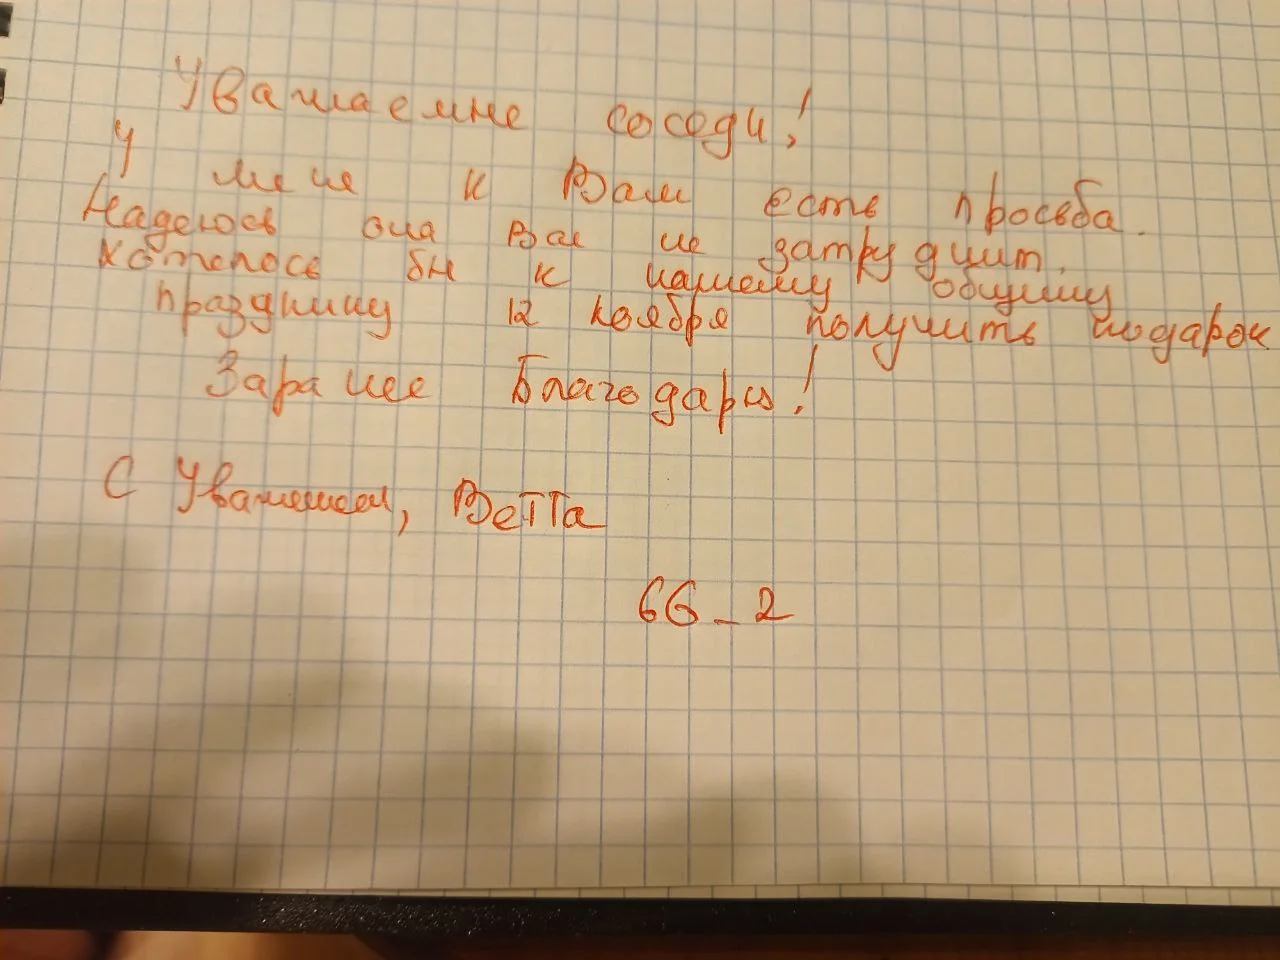 Уважаемые соседи!
У меня к Вам есть просьба.
Надеюсь она Вас не затруднит.
Хотелось бы к нашему общему
празднику 12 ноября получить подарок
Заранее Благодарю!
С Уважением, Ветта
66_2